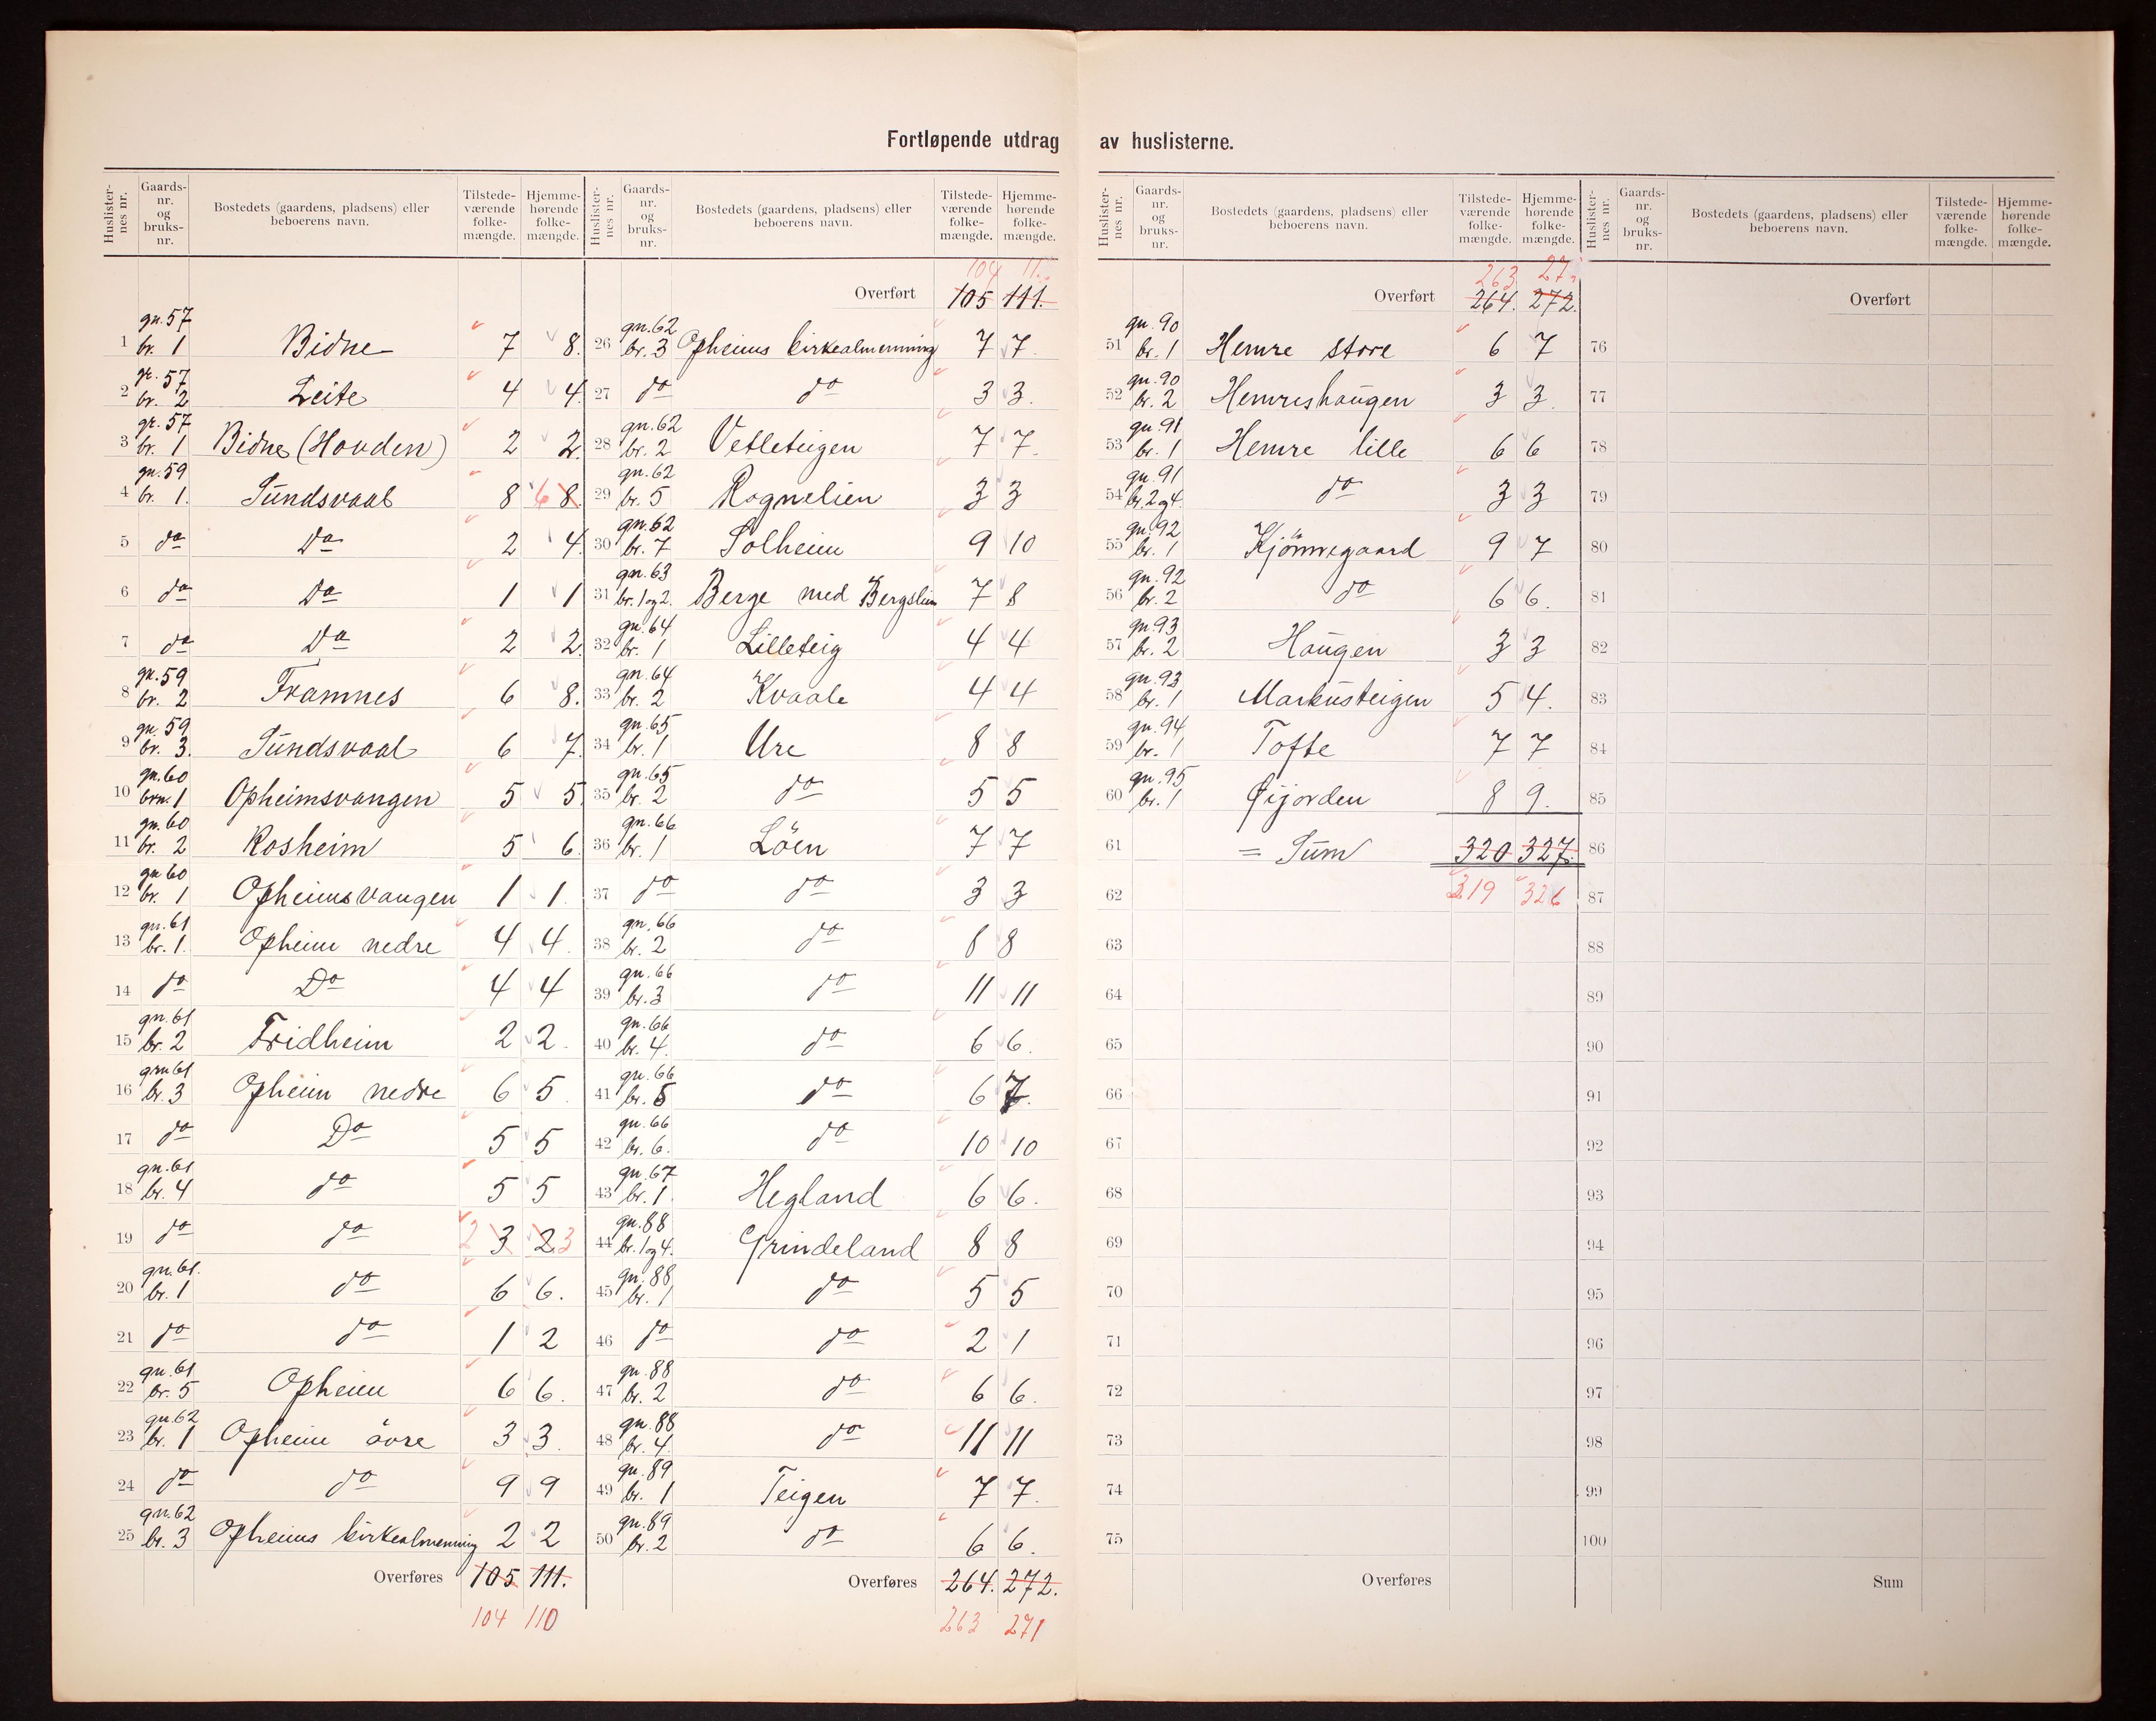 Fortløpende utdrag av huslisterne.
Huslister-nes nr. Gaards-nr. og bruks-nr. Bostedets (gaardens, pladsens) eller beboerens navn. Tilstede-værende folke-mængde. Hjemme-hørende folke-mængde.
gn. 57
1 br. 1 Bidne 7 8.
gr. 57
2 br. 2 Leite 4 4.
gr. 57
3 br. 1 Bidne (Hovden) 2 2
gn. 59
4 br. 1. Sundsvaal 8 6 8.
5 do Do 2 4.
6 do Do 1 1
7 do Do 2 2.
gn. 59
8 br. 2 Framnes 6 8.
gn. 59
9 br. 3. Sundsvaal 6 7.
gn. 60
10 brn. 1 Opheimsvangen 5 5
gn. 60
11 br. 2 Rosheim 5 6
gn 60
12 br. 1 Opheimsvangen 1 1.
gn. 61
13 br. 1. Opheim nedre 4 4.
14 do Do 4 4
gn. 61
15 br. 2 Fridheim 2 2.
grn 61
16 br. 3 Opheim nedre 6 5.
17 do Do 5 5
gn. 61
18 br. 4 do 5 5
19 do do 2 3 2 3
gn. 61.
20 br. 1 do 6 6.
21 do do 1 2
gn. 61
22 br. 5 Opheim 6 6.
gn. 62
23 br. 1 Opheim övre 3 3.
24 do do 9 9
gn. 62
25 br. 3 Opheims kirkealmenning 2 2
Overføres 105 111.
104 110
Huslister-nes nr. Gaards-nr. og bruks-nr. Bostedets (gaardens, pladsens) eller beboerens navn. Tilstede-værende folke-mængde. Hjemme-hørende folke-mængde.
104
Overført 105 111.
gn. 62
26 br. 3 Opheims kirkealmenning 7 7.
27 do do 3 3.
gn. 62
28 br. 2 Vetleteigen 7 7.
gn. 62
29 br. 5 Rognelien 3 3
gn. 62
30 br. 7 Solheim 9 10
gn. 63
31 br. 1 og 2. Berge med Bergslien 7 8
gn. 64
32 br. 1 Lilleteig 4 4
gn. 64
33 br. 2 Kvaale 4 4
gn. 65
34 br. 1 Ure 8 8
gn. 65
35 br. 2 do 5 5
gn. 66
36 br. 1 Löen 7 7
37 do do 3 3
gn. 66
38 br. 2 do 8 8
gn. 66
39 br. 3 do 11 11
gn. 66
40 br. 4. do 6 6.
gn. 66
41 br. 5 do 6 7.
gn. 66
42 br. 6. do 10 10
gn. 67
43 br. 1. Hegland 6 6.
gn. 88
44 br. 1 og 4. Grindeland 8 8
gn. 88
45 br. 1 do 5 5
46 do do 2 1
gn. 88
47 br. 2 do 6 6.
gn. 88
48 br. 4. do 11 11
gn. 89
49 br. 1 Teigen 7 7.
gn. 89
50 br. 2 do 6 6.
Overføres 264. 272.
263 271
Huslister-nes nr. Gaards-nr. og bruks-nr. Bostedets (gaardens, pladsens) eller beboerens navn. Tilstede-værende folke-mængde. Hjemme-hørende folke-mængde.
263
Overført 264. 272.
gn. 90
51 br. 1 Hemre store 6 7
gn. 90
52 br. 2 Hemreshaugen 3 3.
gn. 91
53 br. 1 Hemre lille 6 6
gn. 91
54 br. 2 og 4. do 3 3
gn. 92
55 br. 1 Kjönnegaard 9 7
gn. 92
56 br. 2 do 6 6.
gn. 93
57 br. 2 Haugen 3 3
gn. 93
58 br. 1 Markusteigen 5 4.
gn. 94
59 br. 1 Tofte 7 7
gn. 95
60 br. 1 Øijorden 8 9.
61 = Sum 320 327.
62 319 326
63
64
65
66
67
68
69
70
71
72
73
74
75
Overføres
Huslister-nes nr. Gaards-nr. og bruks-nr. Bostedets (gaardens, pladsens) eller beboerens navn. Tilstede-værende folke-mængde. Hjemme-hørende folke-mængde.
Overført
76
77
78
79
80
81
82
83
84
85
86
87
88
89
90
91
92
93
94
95
96
97
98
99
100
Sum